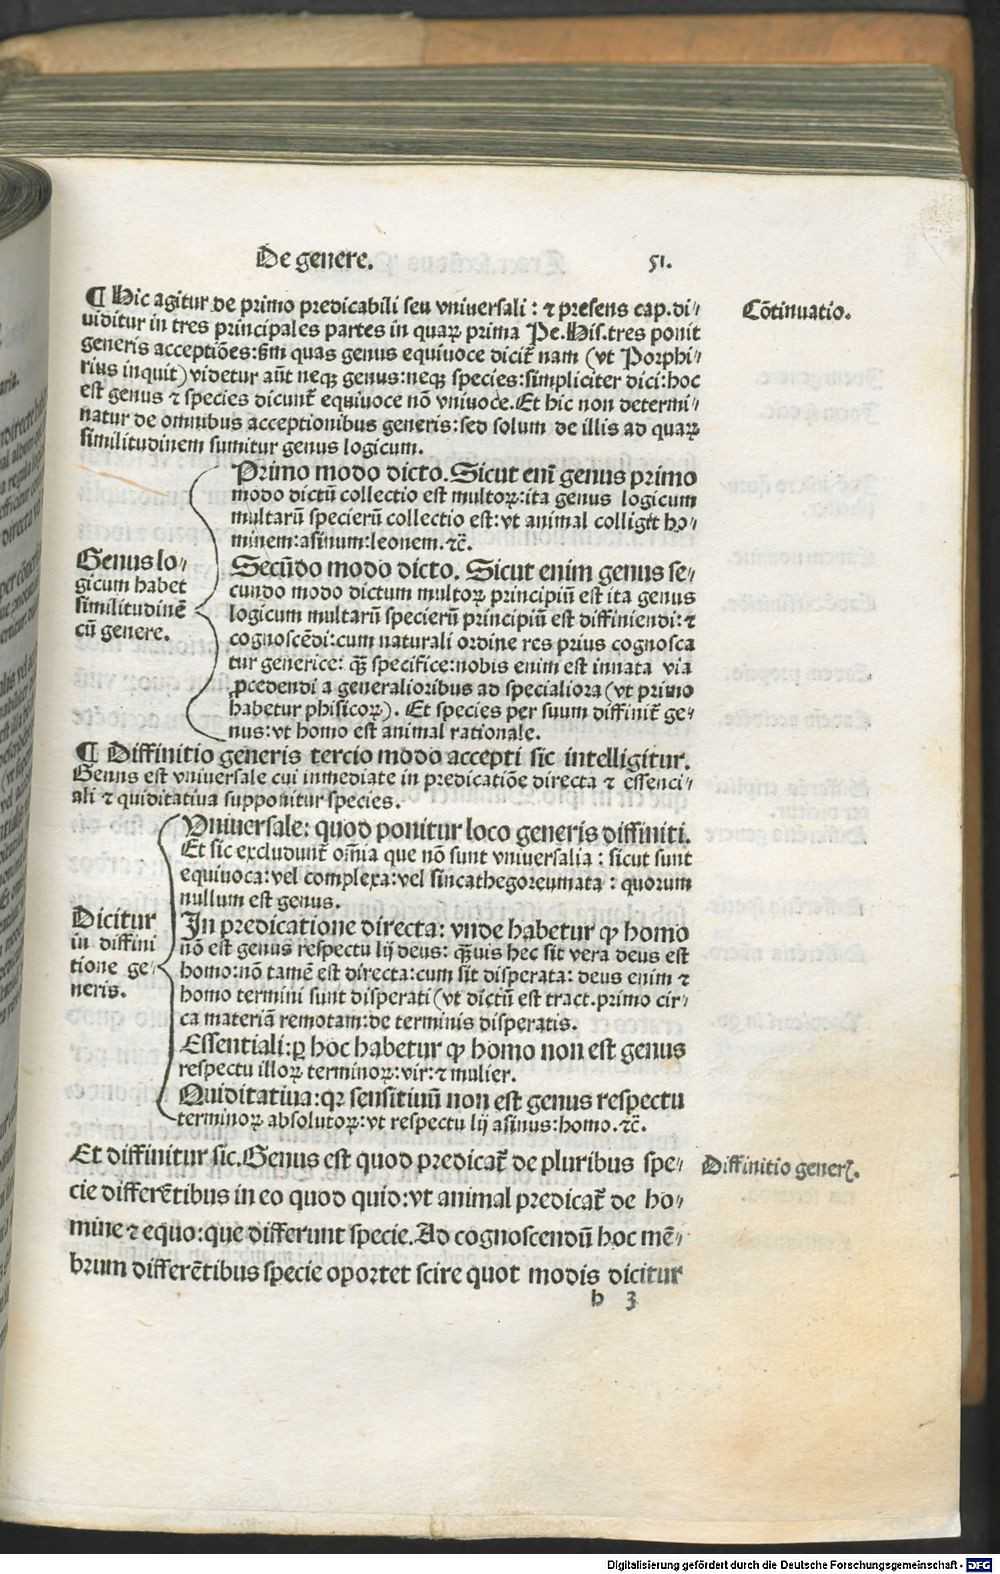 De genere.
51.
¶ Hic agitur de primo predicabili seu vniuersali: ⁊ presens cap. di⸗
uiditur in tres principales partes in quaꝝ prima Pe. His. tres ponit
generis acceptiōes: ẜm quas genus equiuoce dicit᷑ nam (vt Porphi⸗
rius inquit) videtur aūt neqꝫ genus: neqꝫ species: simpliciter dici: hoc
est genus ⁊ species dicunt᷑ equiuoce nō vniuoce. Et hic non determi⸗
natur de omnibus acceptionibus generis: sed solum de illis ad quaꝝ
similitudinem sumitur genus logicum.
Cōtinuatio.
Genus lo⸗
gicum habet
similitudinē
cū genere.
Primo modo dicto. Sicut eni᷑ genus primo
modo dictū collectio est multoꝝ: ita genus logicum
multarū specierū collectio est: vt animal colligit ho⸗
minem: asinum: leonem. ⁊c̄.
Secūdo modo dicto. Sicut enim genus se⸗
cundo modo dictum multoꝝ principiū est ita genus
logicum multarū specierū principiū est diffiniendi: ⁊
cognoscēdi: cum naturali ordine res prius cognosca
tur generice: qꝫ̄ specifice: nobis enim est innata via
ꝓcedendi a generalioribus ad specialiora (vt primo
habetur phisicoꝝ). Et species per suum diffinit᷑ ge⸗
nus: vt homo est animal rationale.
¶ Diffinitio generis tercio modo accepti sic intelligitur.
Genus est vniuersale cui inmediate in predicatiōe directa ⁊ essenci⸗
ali ⁊ quiditatiua supponitur species.
Dicitur
in diffini
tione ge⸗
neris.
Vniuersale: quod ponitur loco generis diffiniti.
Et sic excludunt᷑ om̄ia que nō sunt vniuersalia: sicut sunt
equiuoca: vel complexa: vel sincathegoreumata: quorum
nullum est genus.
In predicatione directa: vnde habetur ꝙ homo
nō est genus respectu lij deus: qꝫ̄uis hec sit vera deus est
homo: nō tamē est directa: cum sit disperata: deus enim ⁊
homo termini sunt disperati (vt dictū est tract. primo cir⸗
ca materiā remotam: de terminis disperatis.
Essentiali: ꝑ hoc habetur ꝙ homo non est genus
respectu illoꝝ terminoꝝ: vir: ⁊ mulier.
Quiditatiua: qꝛ sensitiuū non est genus respectu
terminoꝝ absolutoꝝ: vt respectu lij asinus: homo. ⁊c̄.
Et diffinitur sic. Genus est quod predicat᷑ de pluribus spe⸗
cie differētibus in eo quod quid: vt animal predicat᷑ de ho⸗
mine ⁊ equo: que differunt specie. Ad cognoscendū hoc mē⸗
brum differētibus specie oportet scire quot modis dicitur
Diffinitio generꝭ.
h 3
Digitalisierung gefördert durch die Deutsche Forschungsgemeinschaft - DFG